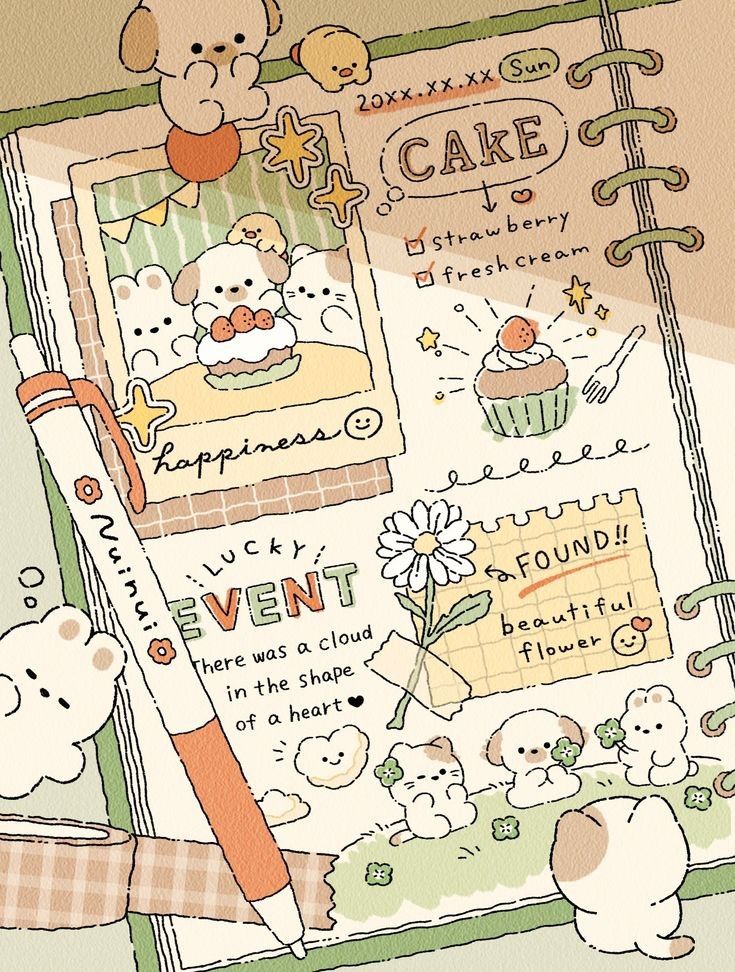 20XX.XX.XX Sun
CAKE
strawberry
fresh cream
happiness
Nuinui
LUCKY
EVENT
There was a cloud
in the shape
of a heart
FOUND!!
beautiful
flower